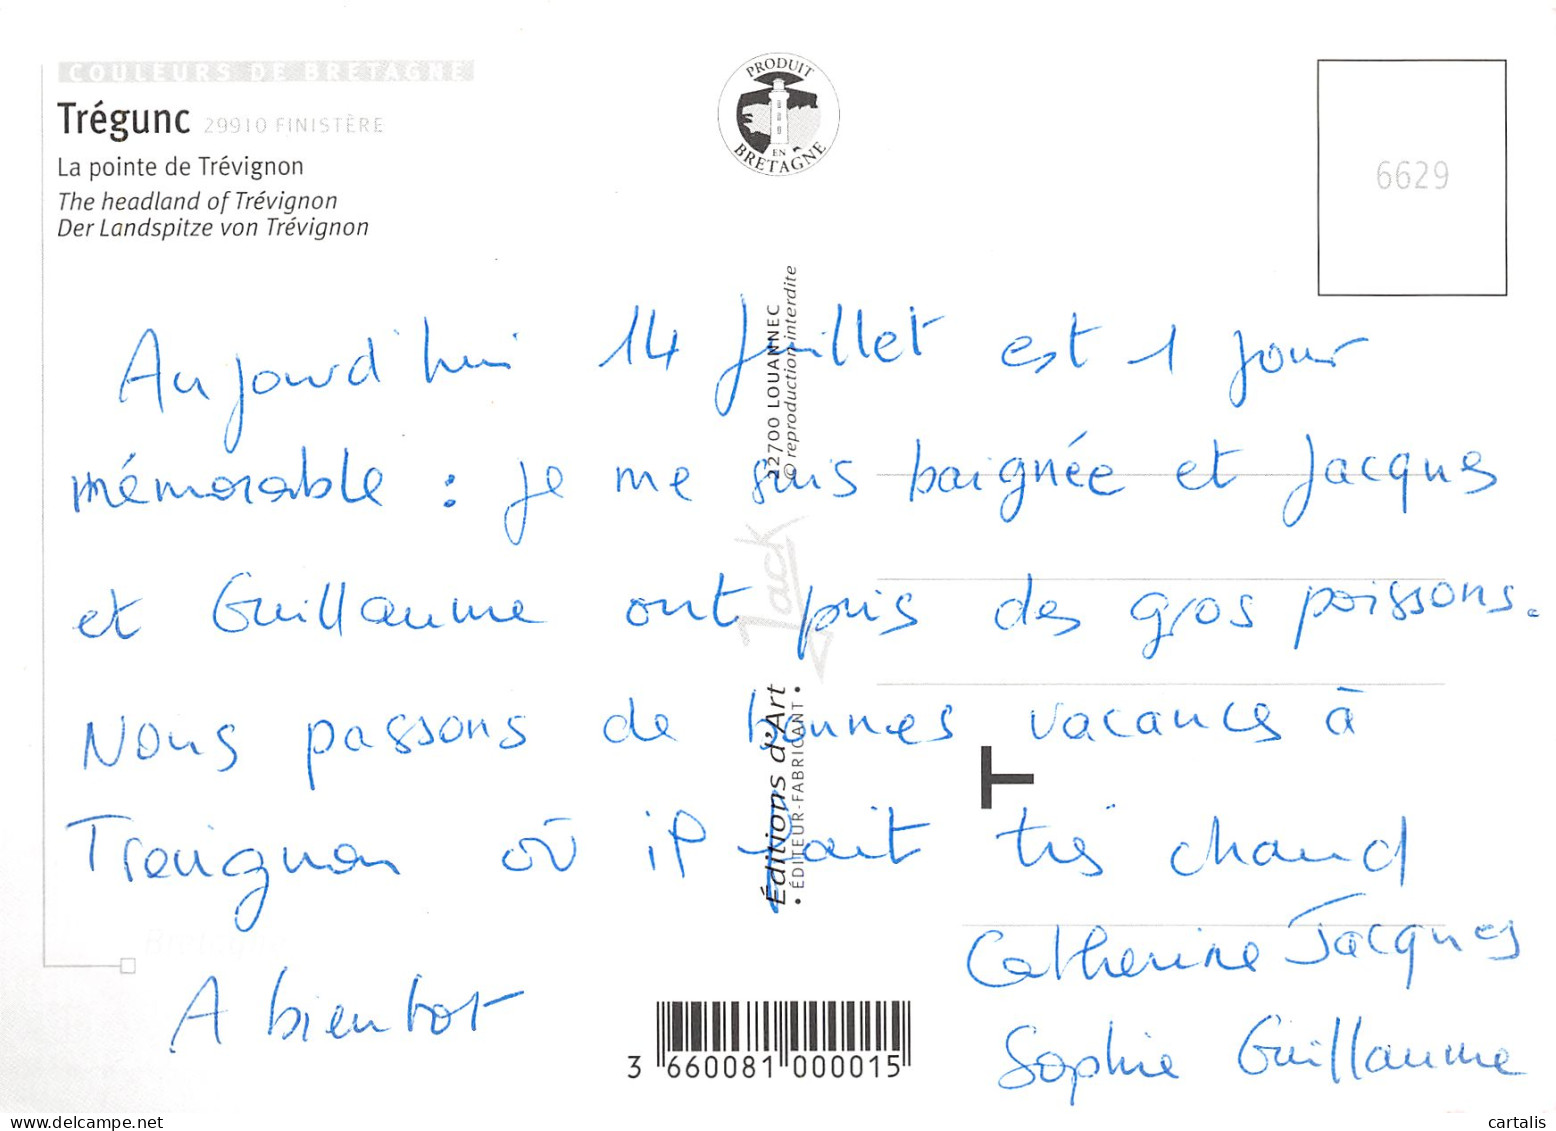 COULEURS DE BRETAGNE
Trégunc 29910 FINISTÈRE
La pointe de Trévignon
The headland of Trévignon
Der Landspitze von Trévignon
PRODUIT
EN
BRETAGNE
6629
22700 LOUANNEC
© reproduction interdite
Jack
Éditions d'Art
• ÉDITEUR-FABRICANT •
Aujourd'hui 14 Juillet est 1 jour
mémorable : je me suis baignée et Jacques
et Guillaume ont pris des gros poissons.
Nous passons de bonnes vacances à
Trevignon où il fait très chaud
A bientot
Catherine Jacques
Sophie Guillaume
T
3 660081 000015
www.delcampe.net
cartalis